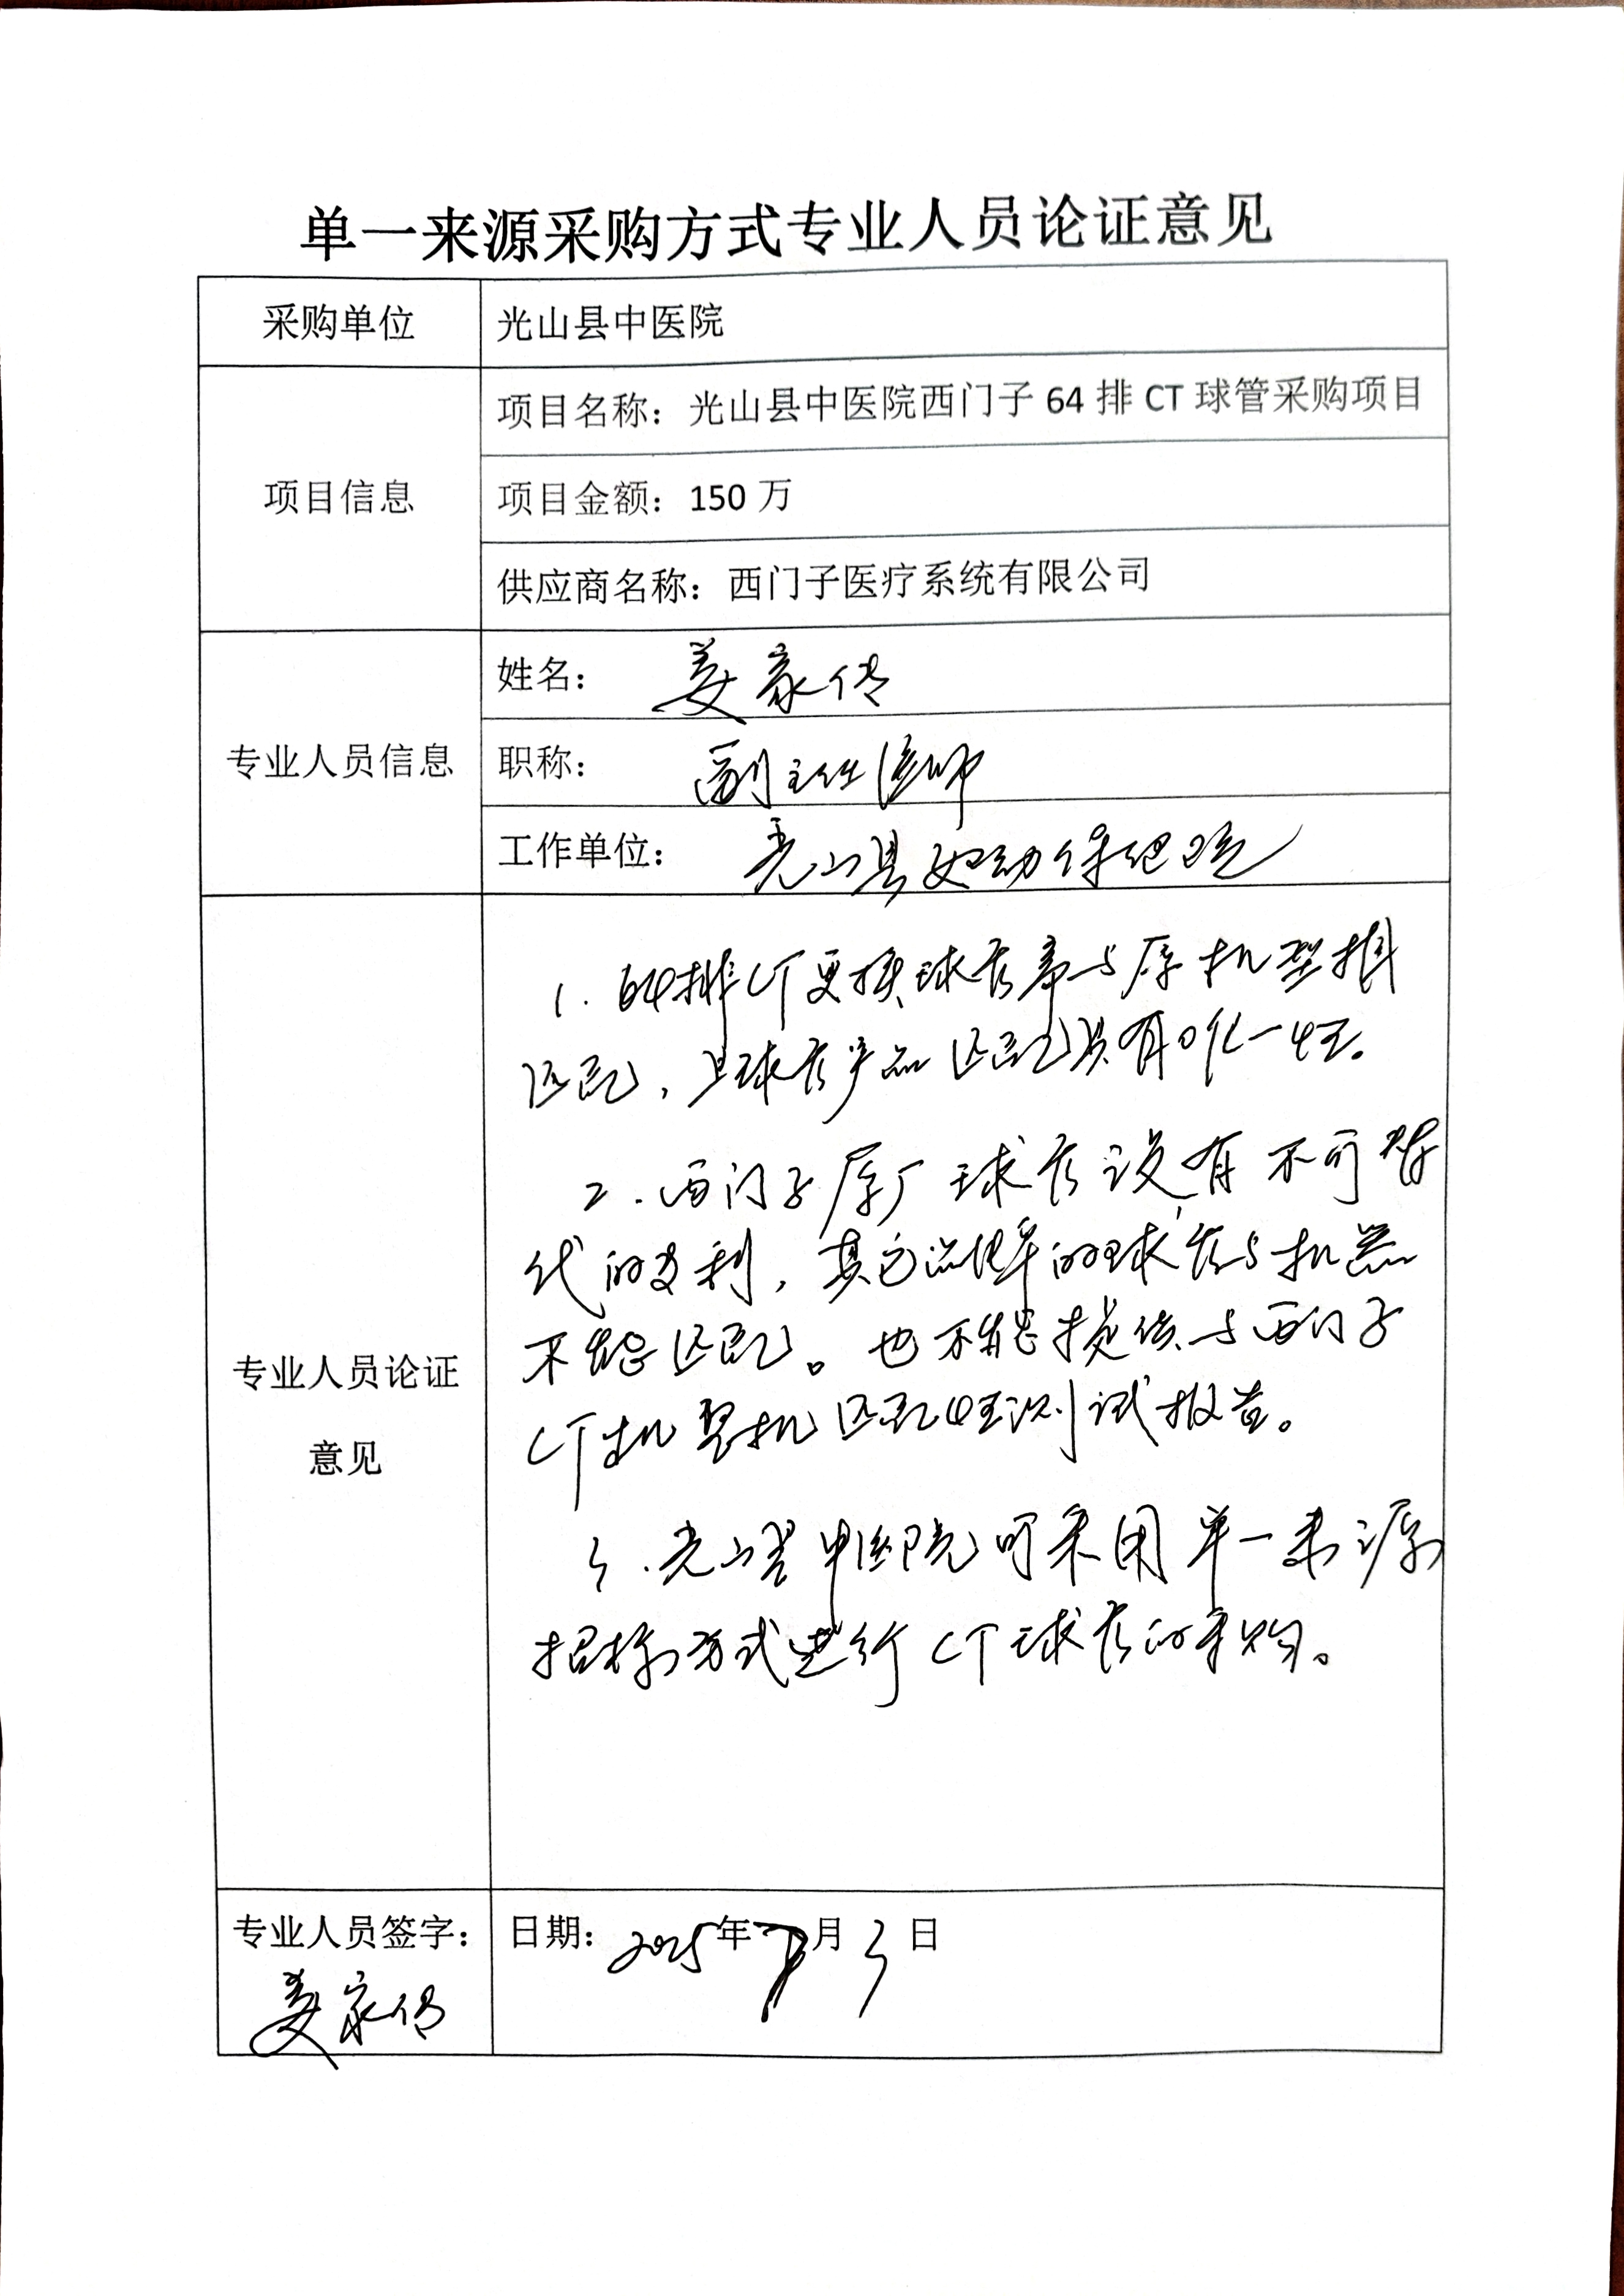 单一来源采购方式专业人员论证意见
采购单位
光山县中医院
项目信息
项目名称：光山县中医院西门子 64 排 CT 球管采购项目
项目金额：150 万
供应商名称：西门子医疗系统有限公司
专业人员信息
姓名： 姜家传
职称： 副主任医师
工作单位： 光山县妇幼保健院
专业人员论证
意见
1. 64排CT更换球管需与原机型相
匹配，且球管产品匹配具有唯一性。
2. 西门子原厂球管设有不可替
代的专利，其它品牌的球管与机器
不能匹配。也不能提供与西门子
CT机整机匹配性测试报告。
3. 光山县中医院可采用单一来源
招标方式进行CT球管的采购。
专业人员签字：
姜家传
日期：2025年7月3日